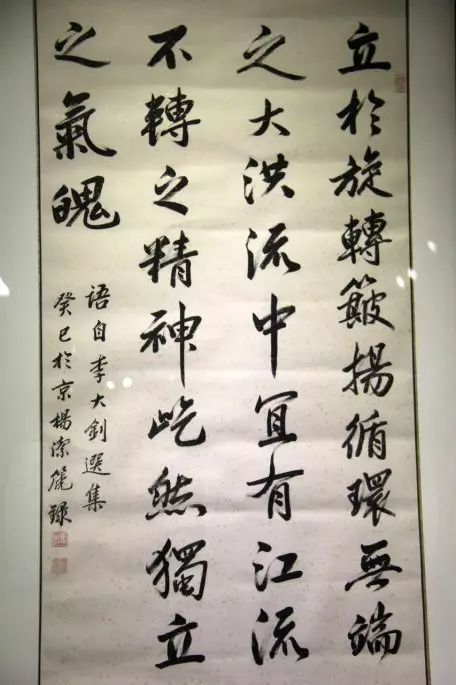 立於旋轉簸揚循環無端
之大洪流中宜有江流
不轉之精神屹然獨立
之氣魄
語自李大釗選集
癸巳於京楊潔篪錄